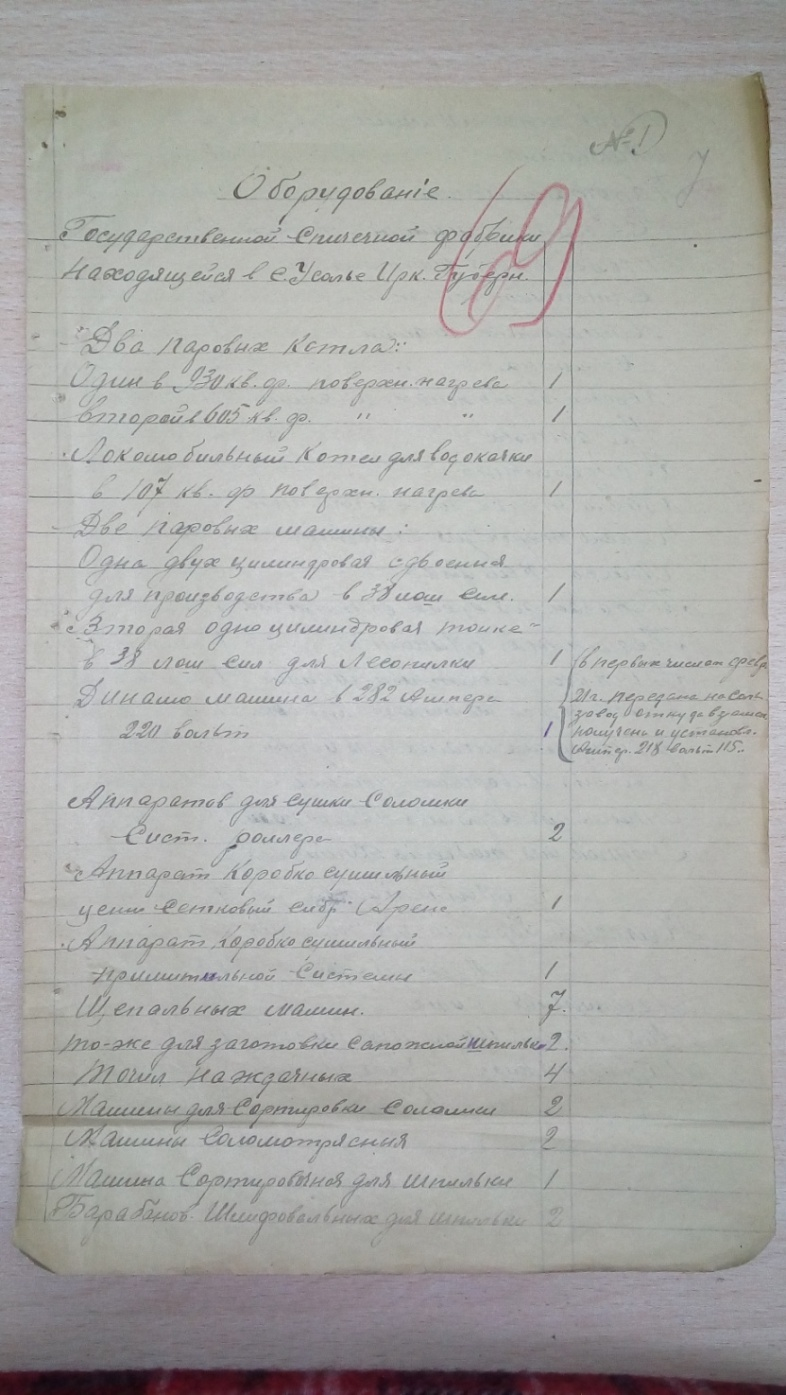 № 1
7
69
Оборудованіе.
Государственной Спичечной фабрики
находящейся в с. Усолье Ирк. Губерн.
Два паровых котла:
Один в 930 кв. ф. поверхн. нагрева 1
второй в 605 кв. ф. " " 1
Локомобильный Котел для водокачки
в 107 кв. ф поверхн. нагрева 1
Две паровых машины:
Одна двух цилиндровая сдвоения
для производства в 38 лош сил. 1
Вторая одно цилиндровая
в 38 лош сил для Лесопилки 1
Динамо машина в 282 Ампера
220 вольт 1
(в первых числах февр.
21 г. передана на
завод откуда взамен
получена и установл.
Ампер. 218 вольт 115.
Аппаратов для сушки Соломки
Сист. роллера 2
Аппарат Коробко сушильный
1
Аппарат Коробко сушильный
Системы 1
Щепальных машин. 7.
то-же для заготовки Сапожной шпильки 2.
Точил наждачных 4
Машины для Сортировки Соломки 2
Машины Соломотрясния 2
Машина Сортировочная для шпильки 1
Барабанов Шлифовальных для шпильки 2